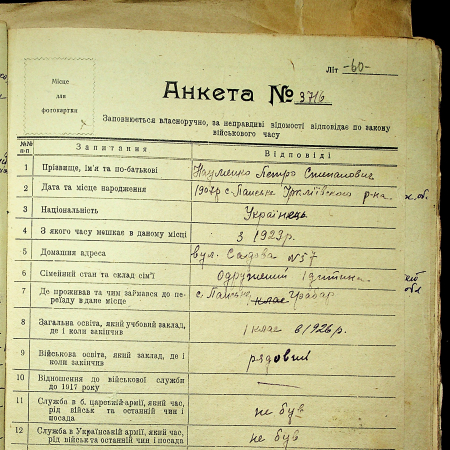 Літ -60-
Місце
для
фотокартки
Анкета № 3716
Заповнюється власноручно, за неправдиві відомості відповідає по закону
військового часу
№№ п-п. Запитання Відповіді
1 Прізвище, ім'я та по-батькові Науменко Петро Степанович
2 Дата та місце народження 1907р с. Панське р-на
3 Національність Українець
4 З якого часу мешкає в даному місці З 1923 р.
5 Домашня адреса вул. Садова №57
6 Сімейний стан та склад сім'ї Одружений 1 дитина
7 Де проживав та чим займався до пе-
реїзду в дане місце с. Панське,
8 Загальна освіта, який учбовий заклад,
де і коли закінчив 1 клас в 1926 р.
9 Військова освіта, який заклад, де і
коли закінчив рядовий
10 Відношення до військової служби
до 1917 року —
11 Служба в б. царській армії, який час,
рід військ та останній чин і
посада не був
12 Служба в Українській армії, який час,
рід військ та останній чин і посада не був